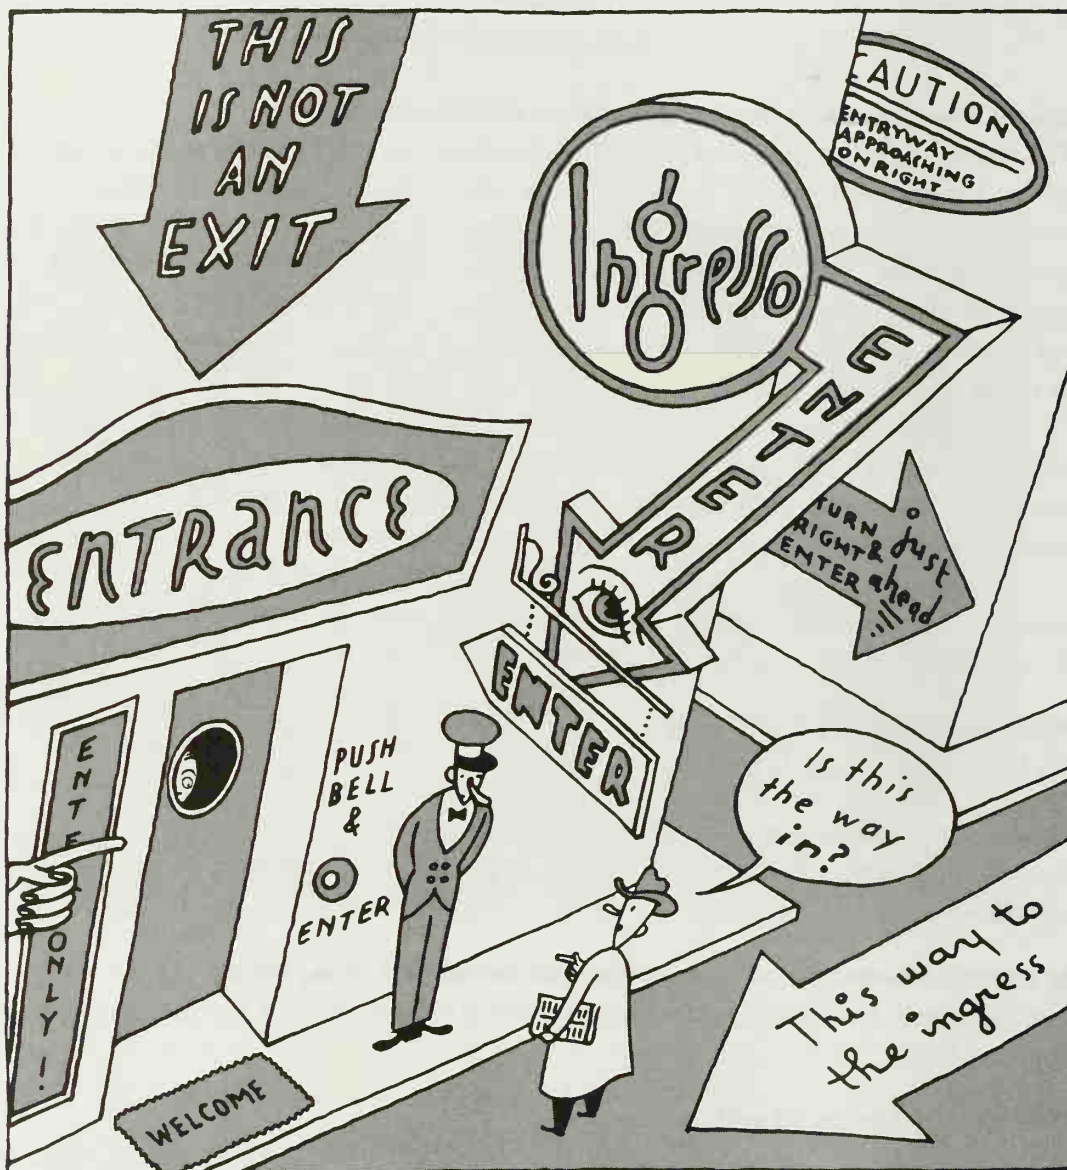 THIS
IS NOT
AN
EXIT
CAUTION
ENTRYWAY
APPROACHING
ON RIGHT
Ingresso
ENTER
TURN
RIGHT &
ENTER
just
ahead
ENTRANCE
ENTER
PUSH
BELL
&
ENTER
ENTE
ONLY!
Is this
the way
in?
This way to
the ingress
WELCOME